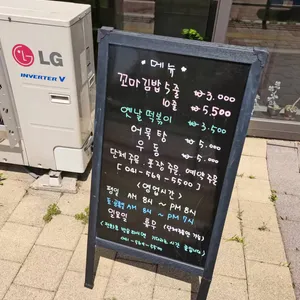 LG
INVERTER V
메뉴
꼬마김밥 5줄 ₩3,000
10줄 ₩5,500
옛날떡볶이 ₩3,500
어묵탕 ₩5,000
우동 ₩5,000
단체주문·포장주문·예약주문
(051-569-5500)
<영업시간>
평일 AM 8시 ~ PM 8시
토·공휴일 AM 8시 ~ PM 7시
일요일 휴무 (단체주문 가능)